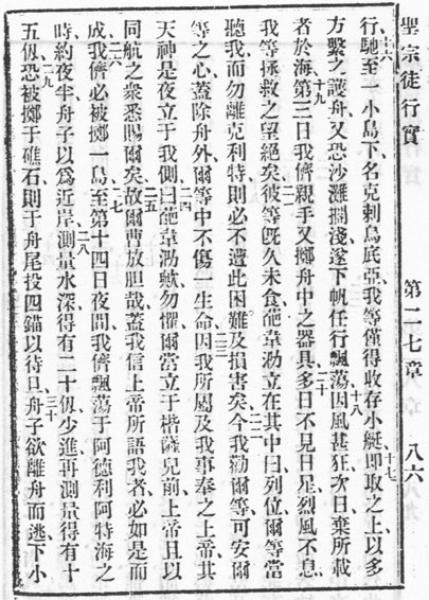 聖宗徒行實 第二七章 八六
十六行馳至一小島下名克剌烏底亞我等僅得收存小艇十七即取之上以多
方繫之護舟又恐沙灘擱淺遂下帆任行飄蕩十八因風甚狂次日棄所載
者於海十九第三日我儕親手又擲舟中之器具二十多日不見日星烈風不息
我等拯救之望絕矣二一彼等旣久未食葩韋泐立在其中曰列位爾等當
聽我而勿離克利特則必不遭此困難及損害矣二二今我勸爾等可安爾
等之心蓋除舟外爾等中不傷一生命二三因我所屬及我事奉之上帝其
天神是夜立于我側二四曰葩韋泐歟勿懼爾當立于楷薩兒前上帝且以
同航之衆悉賜爾矣二五故爾曹放胆哉蓋我信上帝所語我者必如是而
成二六我儕必被擲一島二七至第十四日夜間我儕飄蕩于阿德利阿特海之
時約夜半舟子以爲近岸二八測量水深得有二十仭少進再測量得有十
五仭二九恐被擲于礁石則于舟尾投四錨以待旦三十舟子欲離舟而逃下小